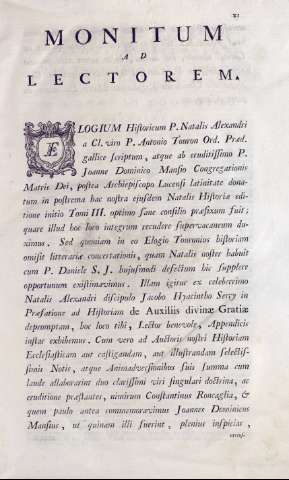 XI
MONITUM
AD
LECTOREM.
ÆLOGIUM Historicum P. Natalis Alexandri
a Cl. viro P. Antonio Touron Ord. Præd.
gallice scriptum, atque ab eruditissimo P.
Joanne Dominico Mansio Congregationis
Matris Dei, postea Archiepiscopo Lucensi latinitate dona-
tum in postrema hac nostra ejusdem Natalis Historiæ edi-
tione initio Tomi III. optimo sane consilio præfixum fuit;
quare illud hoc loco integrum recudere supervacaneum du-
ximus. Sed quoniam in eo Elogio Touronius historiam
omisit litterariæ concertationis, quam Natalis noster habuit
cum P. Daniele S. J. hujusmodi defectum hic supplere
opportunum existimavimus. Illam igitur ex celeberrimo
Natalis Alexandri discipulo Jacobo Hyacintho Serry in
Præfatione ad Historiam de Auxiliis divinæ Gratiæ
depromptam, hoc loco tibi, Lector benevole, Appendicis
instar exhibemus. Cum vero ad Auctoris nostri Historiam
Ecclesiasticam aut castigandam, aut illustrandam selectis-
simis Notis, atque Animadversionibus suis summa cum
laude allaborarint duo clarissimi viri singulari doctrina, ac
eruditione præstantes, nimirum Constantinus Roncaglia, &
quem paulo antea commemoravimus Joannes Dominicus
Mansius, ut quinam illi fuerint, plenius inspicias,